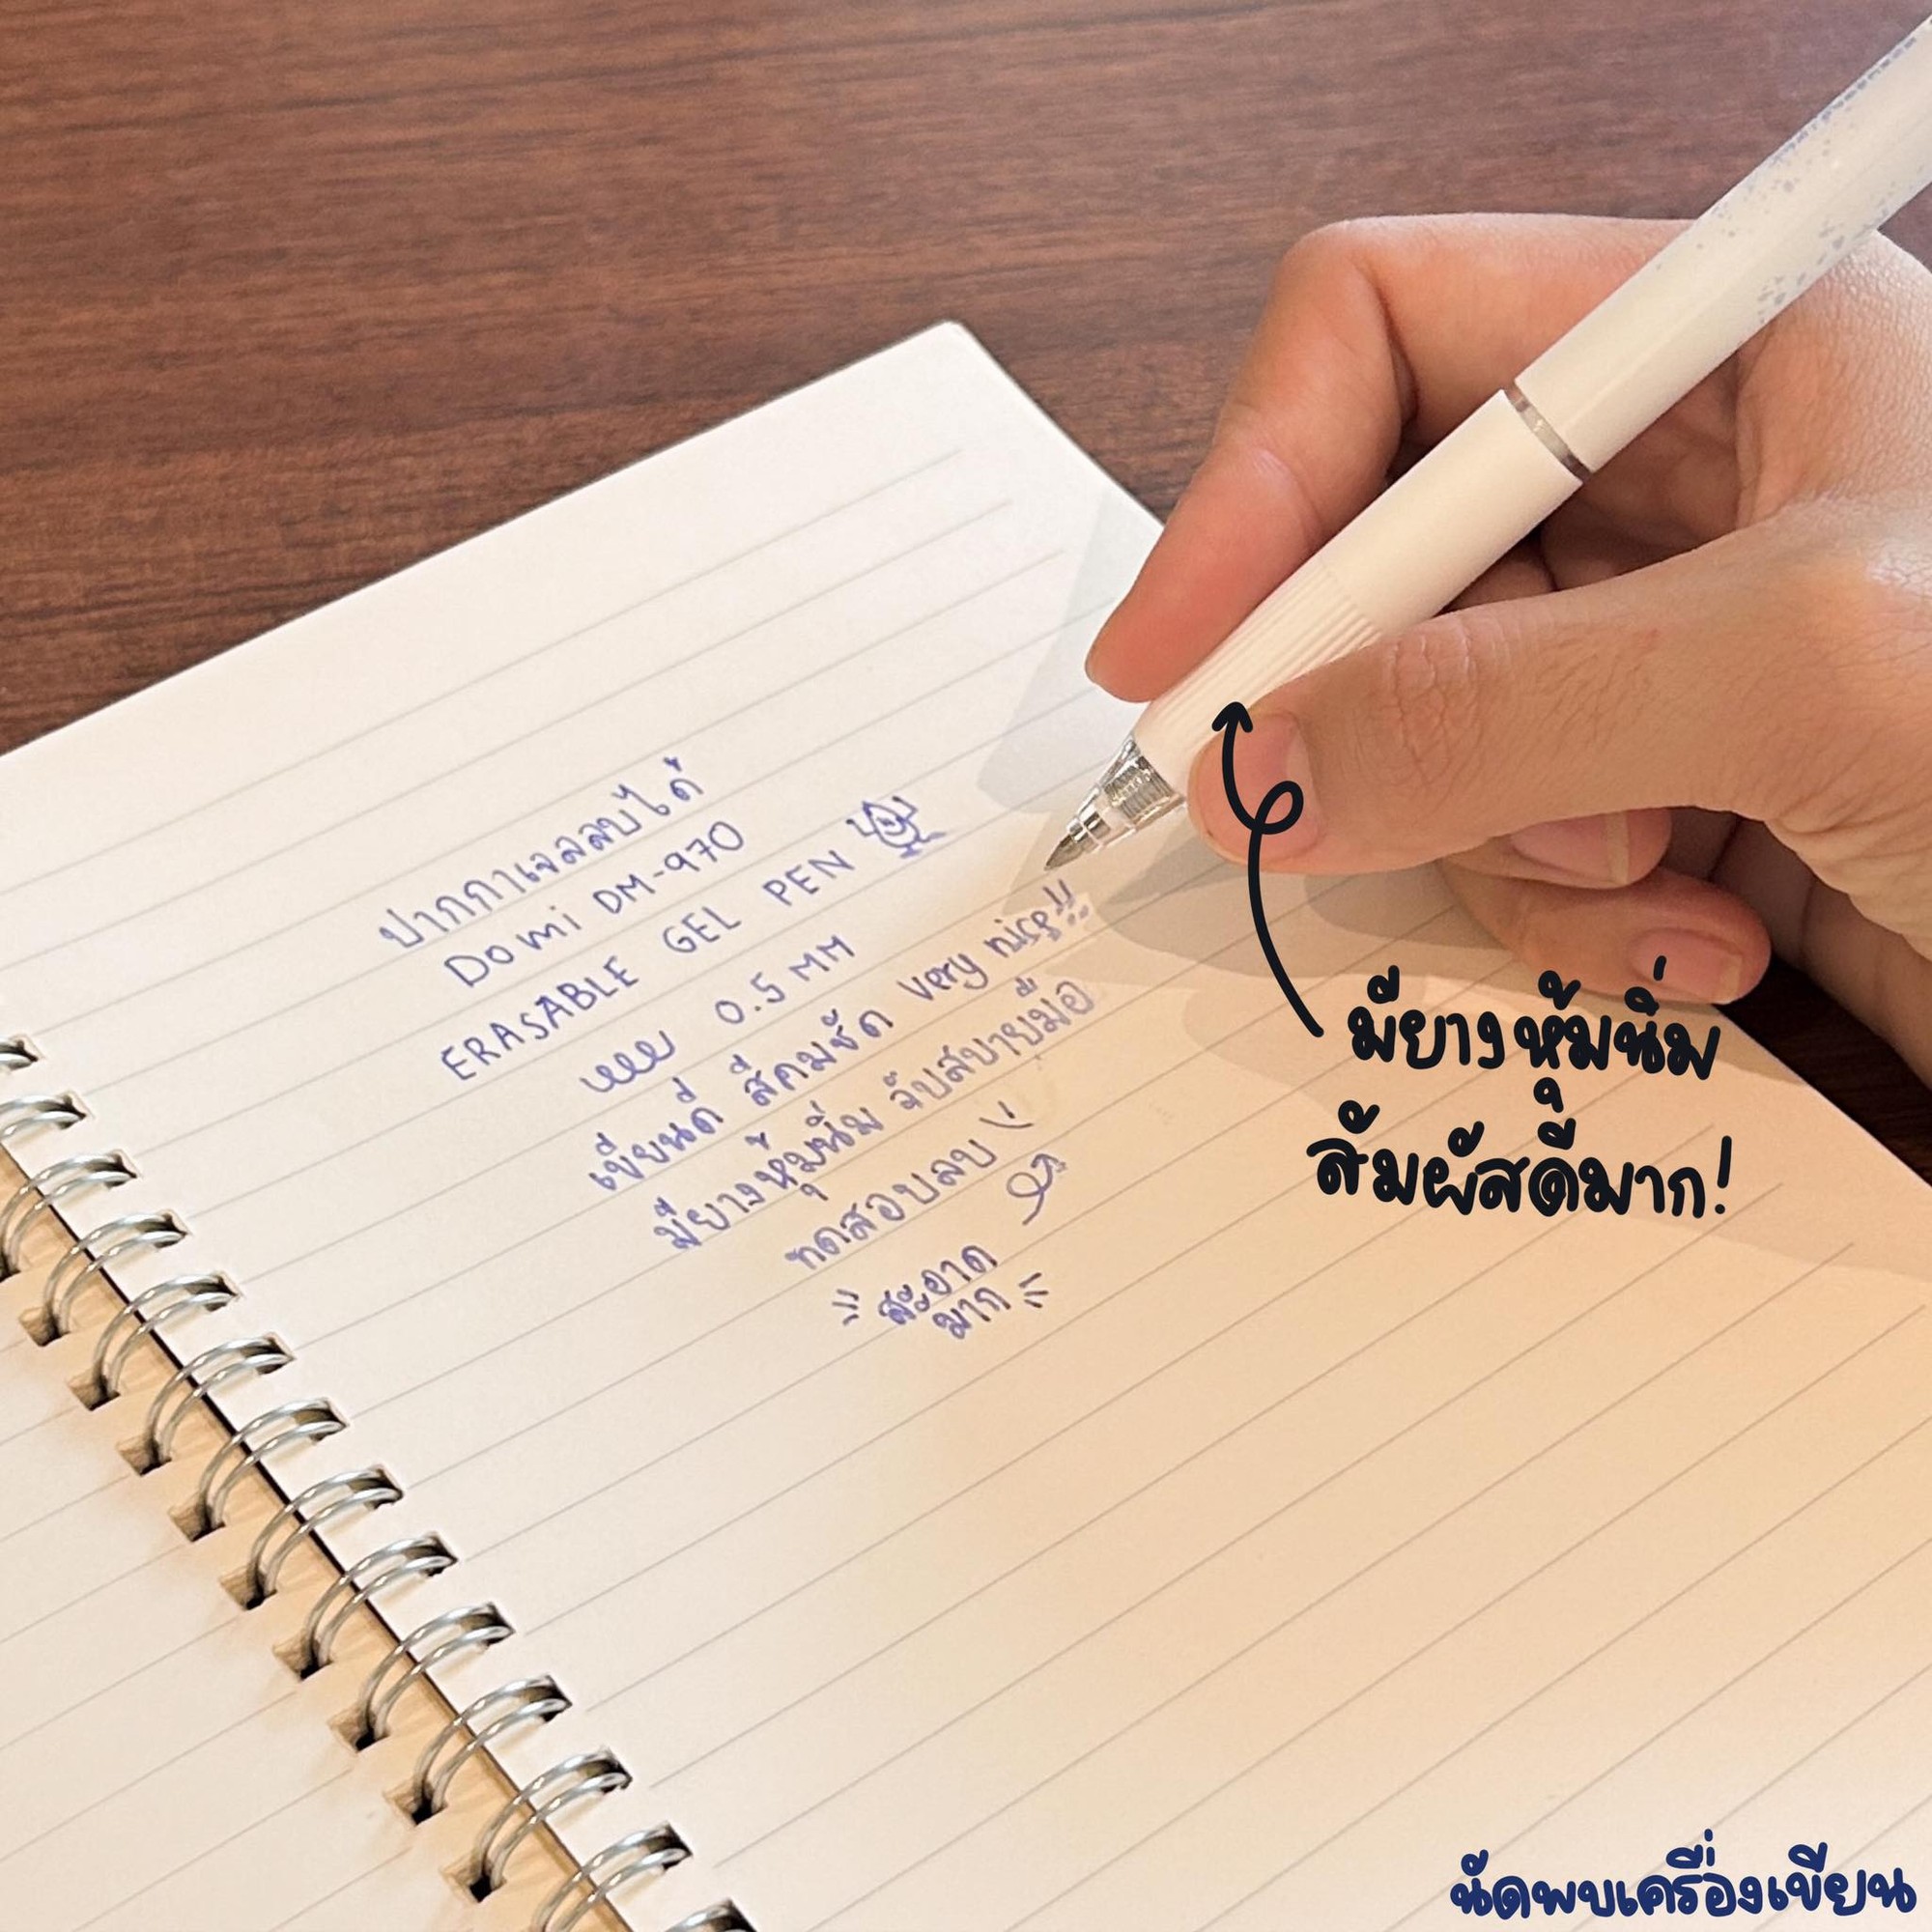 ปากกาเจลลบได้
Domi DM-970
ERASABLE GEL PEN
0.5 MM
เขียนดี สีคมชัด very nice!!
มียางหุ้มนิ่ม จับสบายมือ
ทดสอบลบ
สะอาด
มาก
มียางหุ้มนิ่ม
สัมผัสดีมาก!
นัดพบเครื่องเขียน